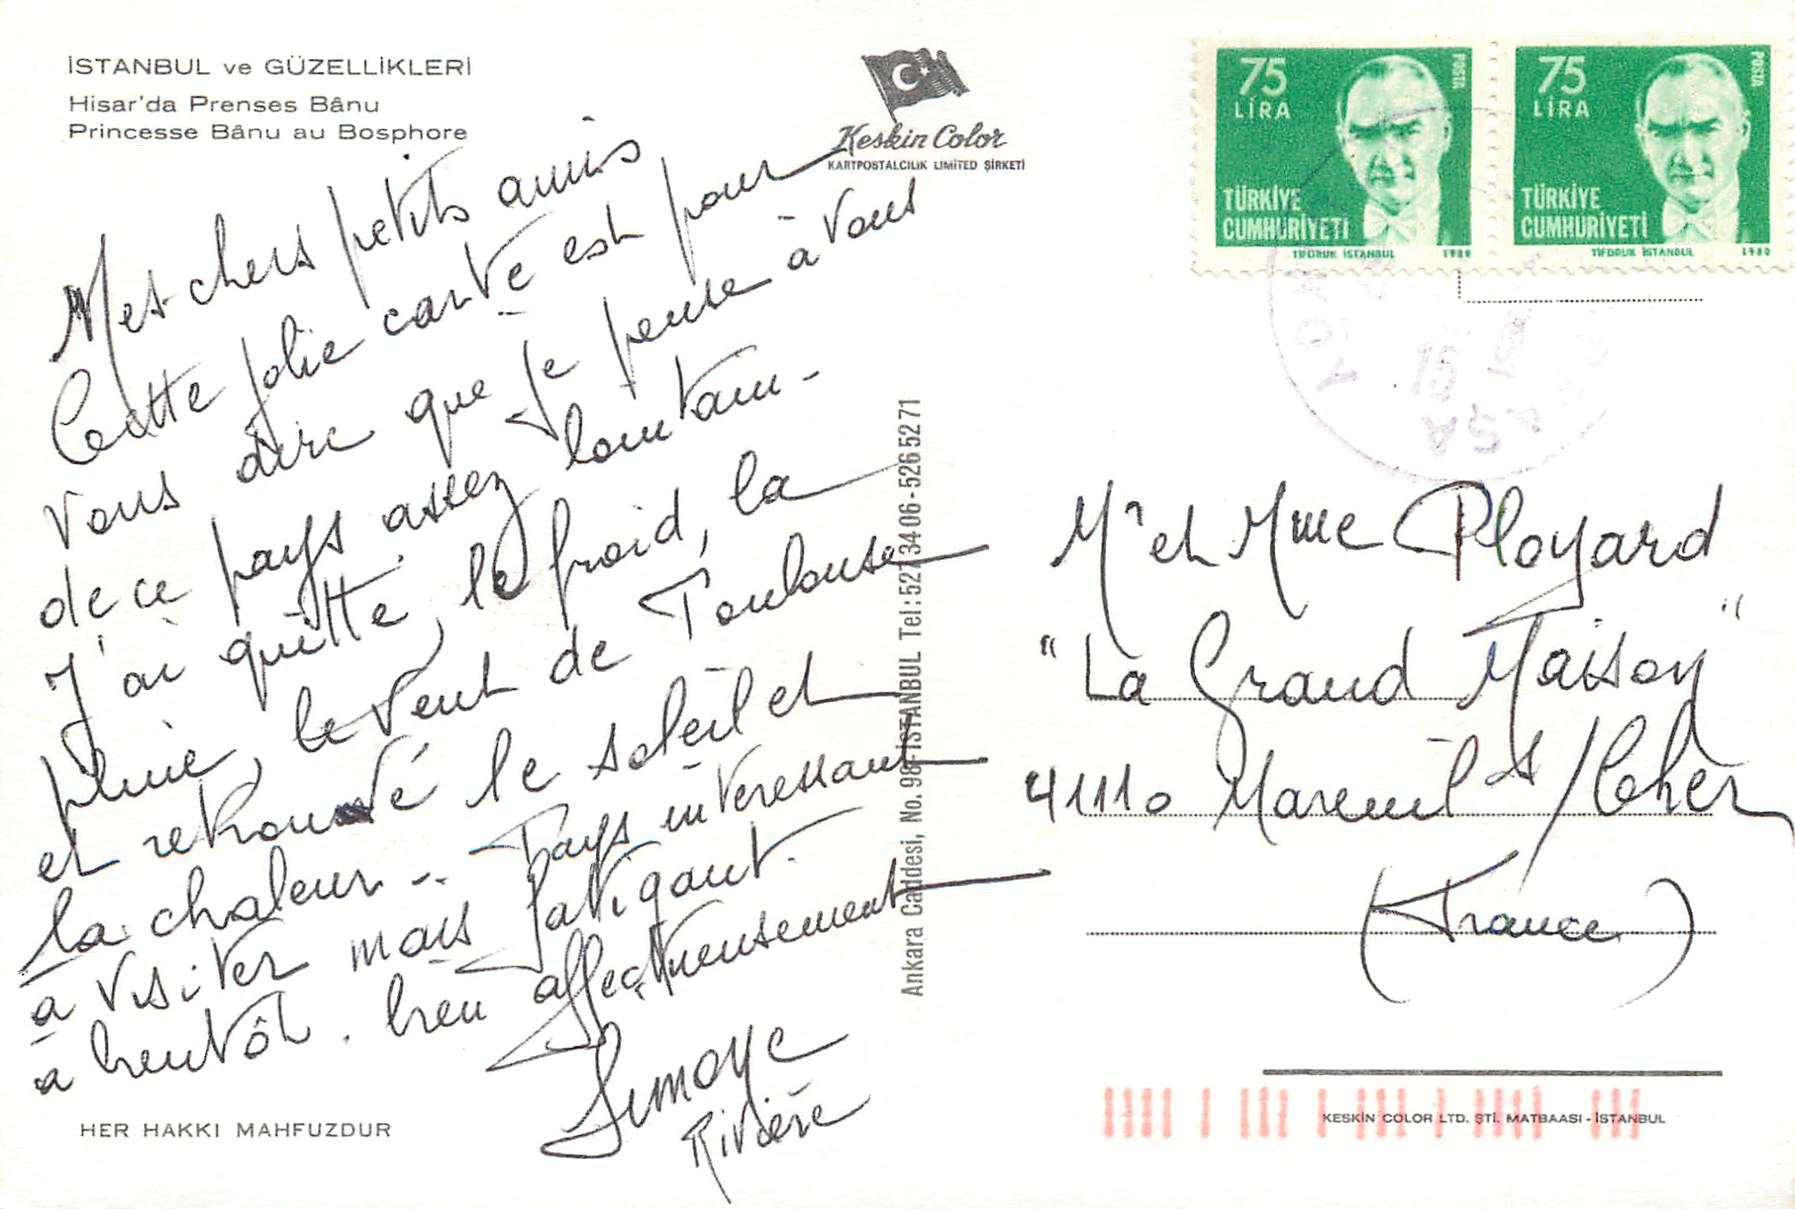 İSTANBUL ve GÜZELLİKLERİ
Hisar'da Prenses Bânu
Princesse Bânu au Bosphore
Keskin Color
KARTPOSTALCILIK LIMITED ŞİRKETİ
Mes chers petits amis
Cette jolie carte est pour
vous dire que je pense à vous
de ce pays assez lointain -
J'ai quitté, le froid, la
pluie, le vent de Toulouse
et retrouvé le soleil et
la chaleur - Pays intéressant
à visiter mais fatigant.
à bientôt. bien affectueusement
Simone
Rivière
HER HAKKI MAHFUZDUR
Ankara Caddesi, No. 98-İSTANBUL Tel: 527 34 06 - 526 52 71
75
LİRA
POSTA
TÜRKİYE
CUMHURİYETİ
TİFDRUK İSTANBUL 1980
75
LİRA
POSTA
TÜRKİYE
CUMHURİYETİ
TİFDRUK İSTANBUL 1980
Mr et Mme Ployard
"La Grand Maison"
41110 Mareuil s/Cher
(France)
KESKİN COLOR LTD. ŞTİ. MATBAASI - İSTANBUL